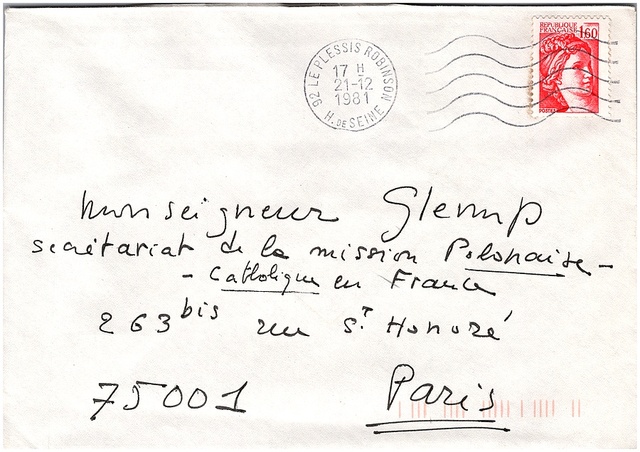 92 LE PLESSIS ROBINSON
17 H
21-12
1981
H. DE SEINE
REPUBLIQUE
FRANÇAISE
1,60
POSTES
Monseigneur Glemp
secrétariat de la mission Polonaise -
- Catholique en France
263 bis rue St Honoré
75001 Paris